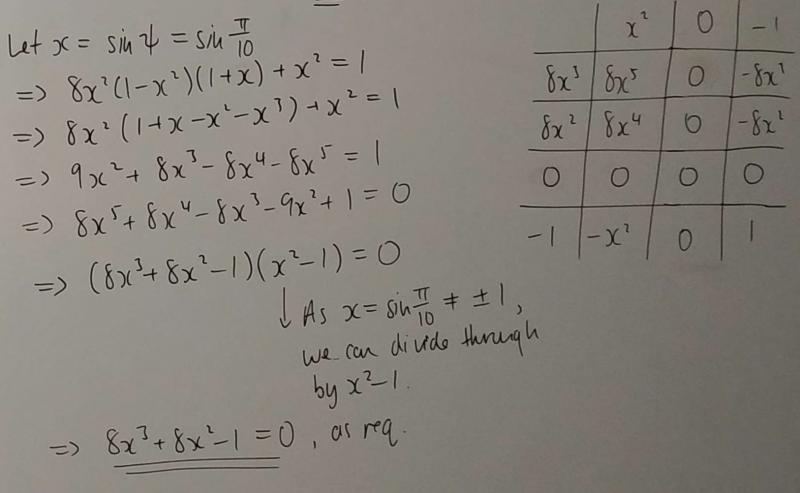 Let x = sin ψ = sin π/10
=> 8x²(1-x²)(1+x) + x² = 1
=> 8x²(1+x-x²-x³) + x² = 1
=> 9x² + 8x³ - 8x⁴ - 8x⁵ = 1
=> 8x⁵ + 8x⁴ - 8x³ - 9x² + 1 = 0
=> (8x³ + 8x² - 1)(x² - 1) = 0
↓ As x = sin π/10 ≠ ±1,
we can divide through
by x² - 1.
=> 8x³ + 8x² - 1 = 0, as req.
x² 0 -1
8x³ 8x⁵ 0 -8x³
8x² 8x⁴ 0 -8x²
0 0 0 0
-1 -x² 0 1